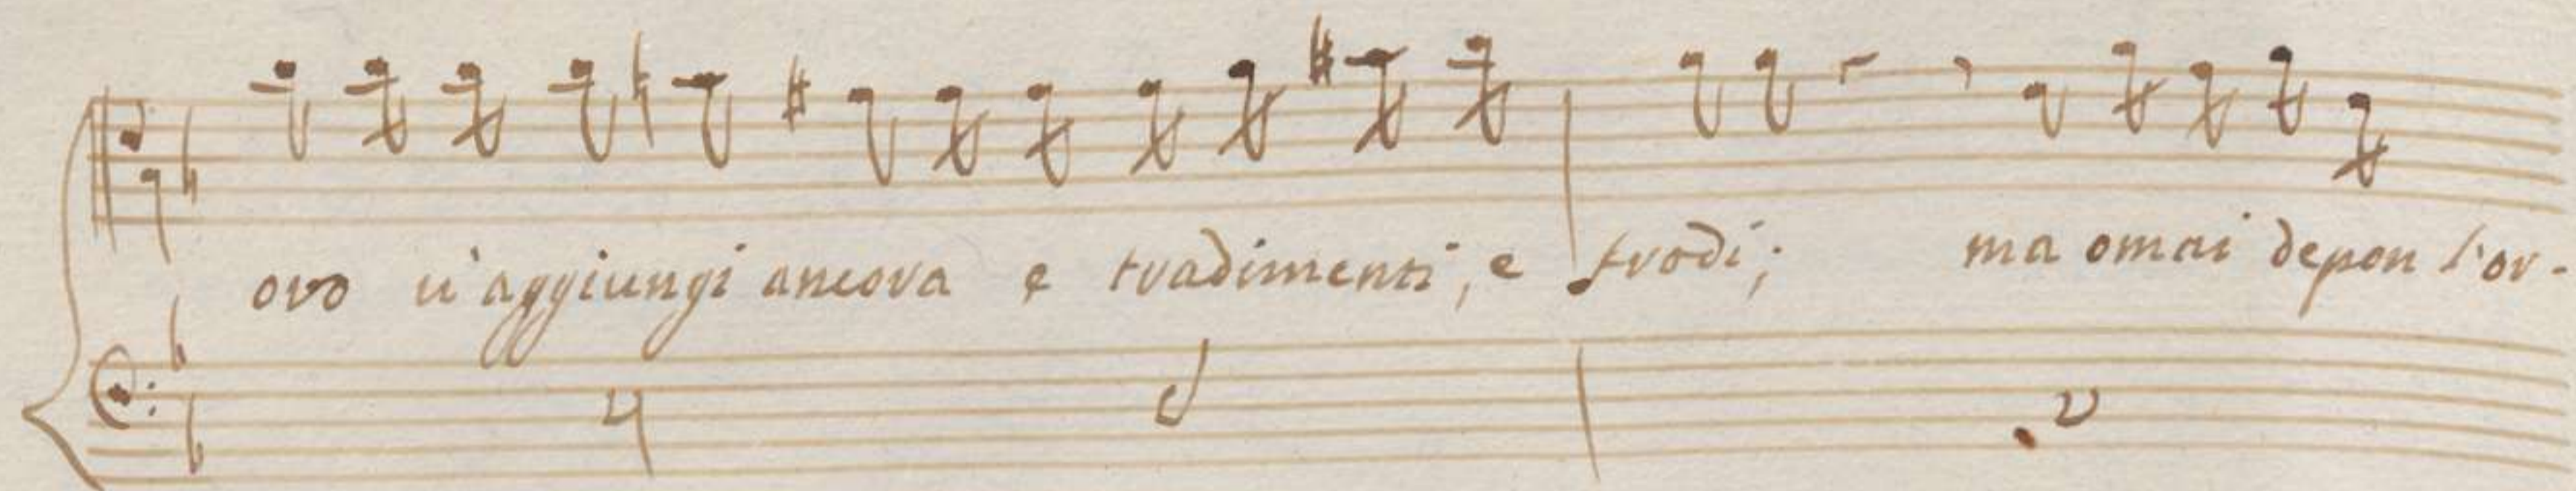 oro vi aggiungi ancora e tradimenti, e frodi; ma omai depon l'or-